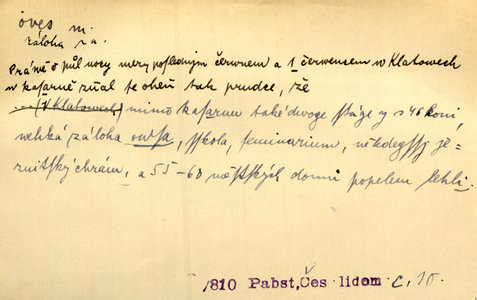 óves m.
záloha ž a.
Právě o půl nocy mezy posledným červnem a 1 červencem w Klatowech
w kasarně zňal se oheň tak prudce, že
... (v Klatowech) mimo kasarnu také dwoge stáge y s 46 koni,
welká záloha owsa, sskola, seminarium, někdegssj ge-
zuitský chrám, a 55-60 městských domů popelem lehli.
1810 Pabst,Čes lidom č. 10.